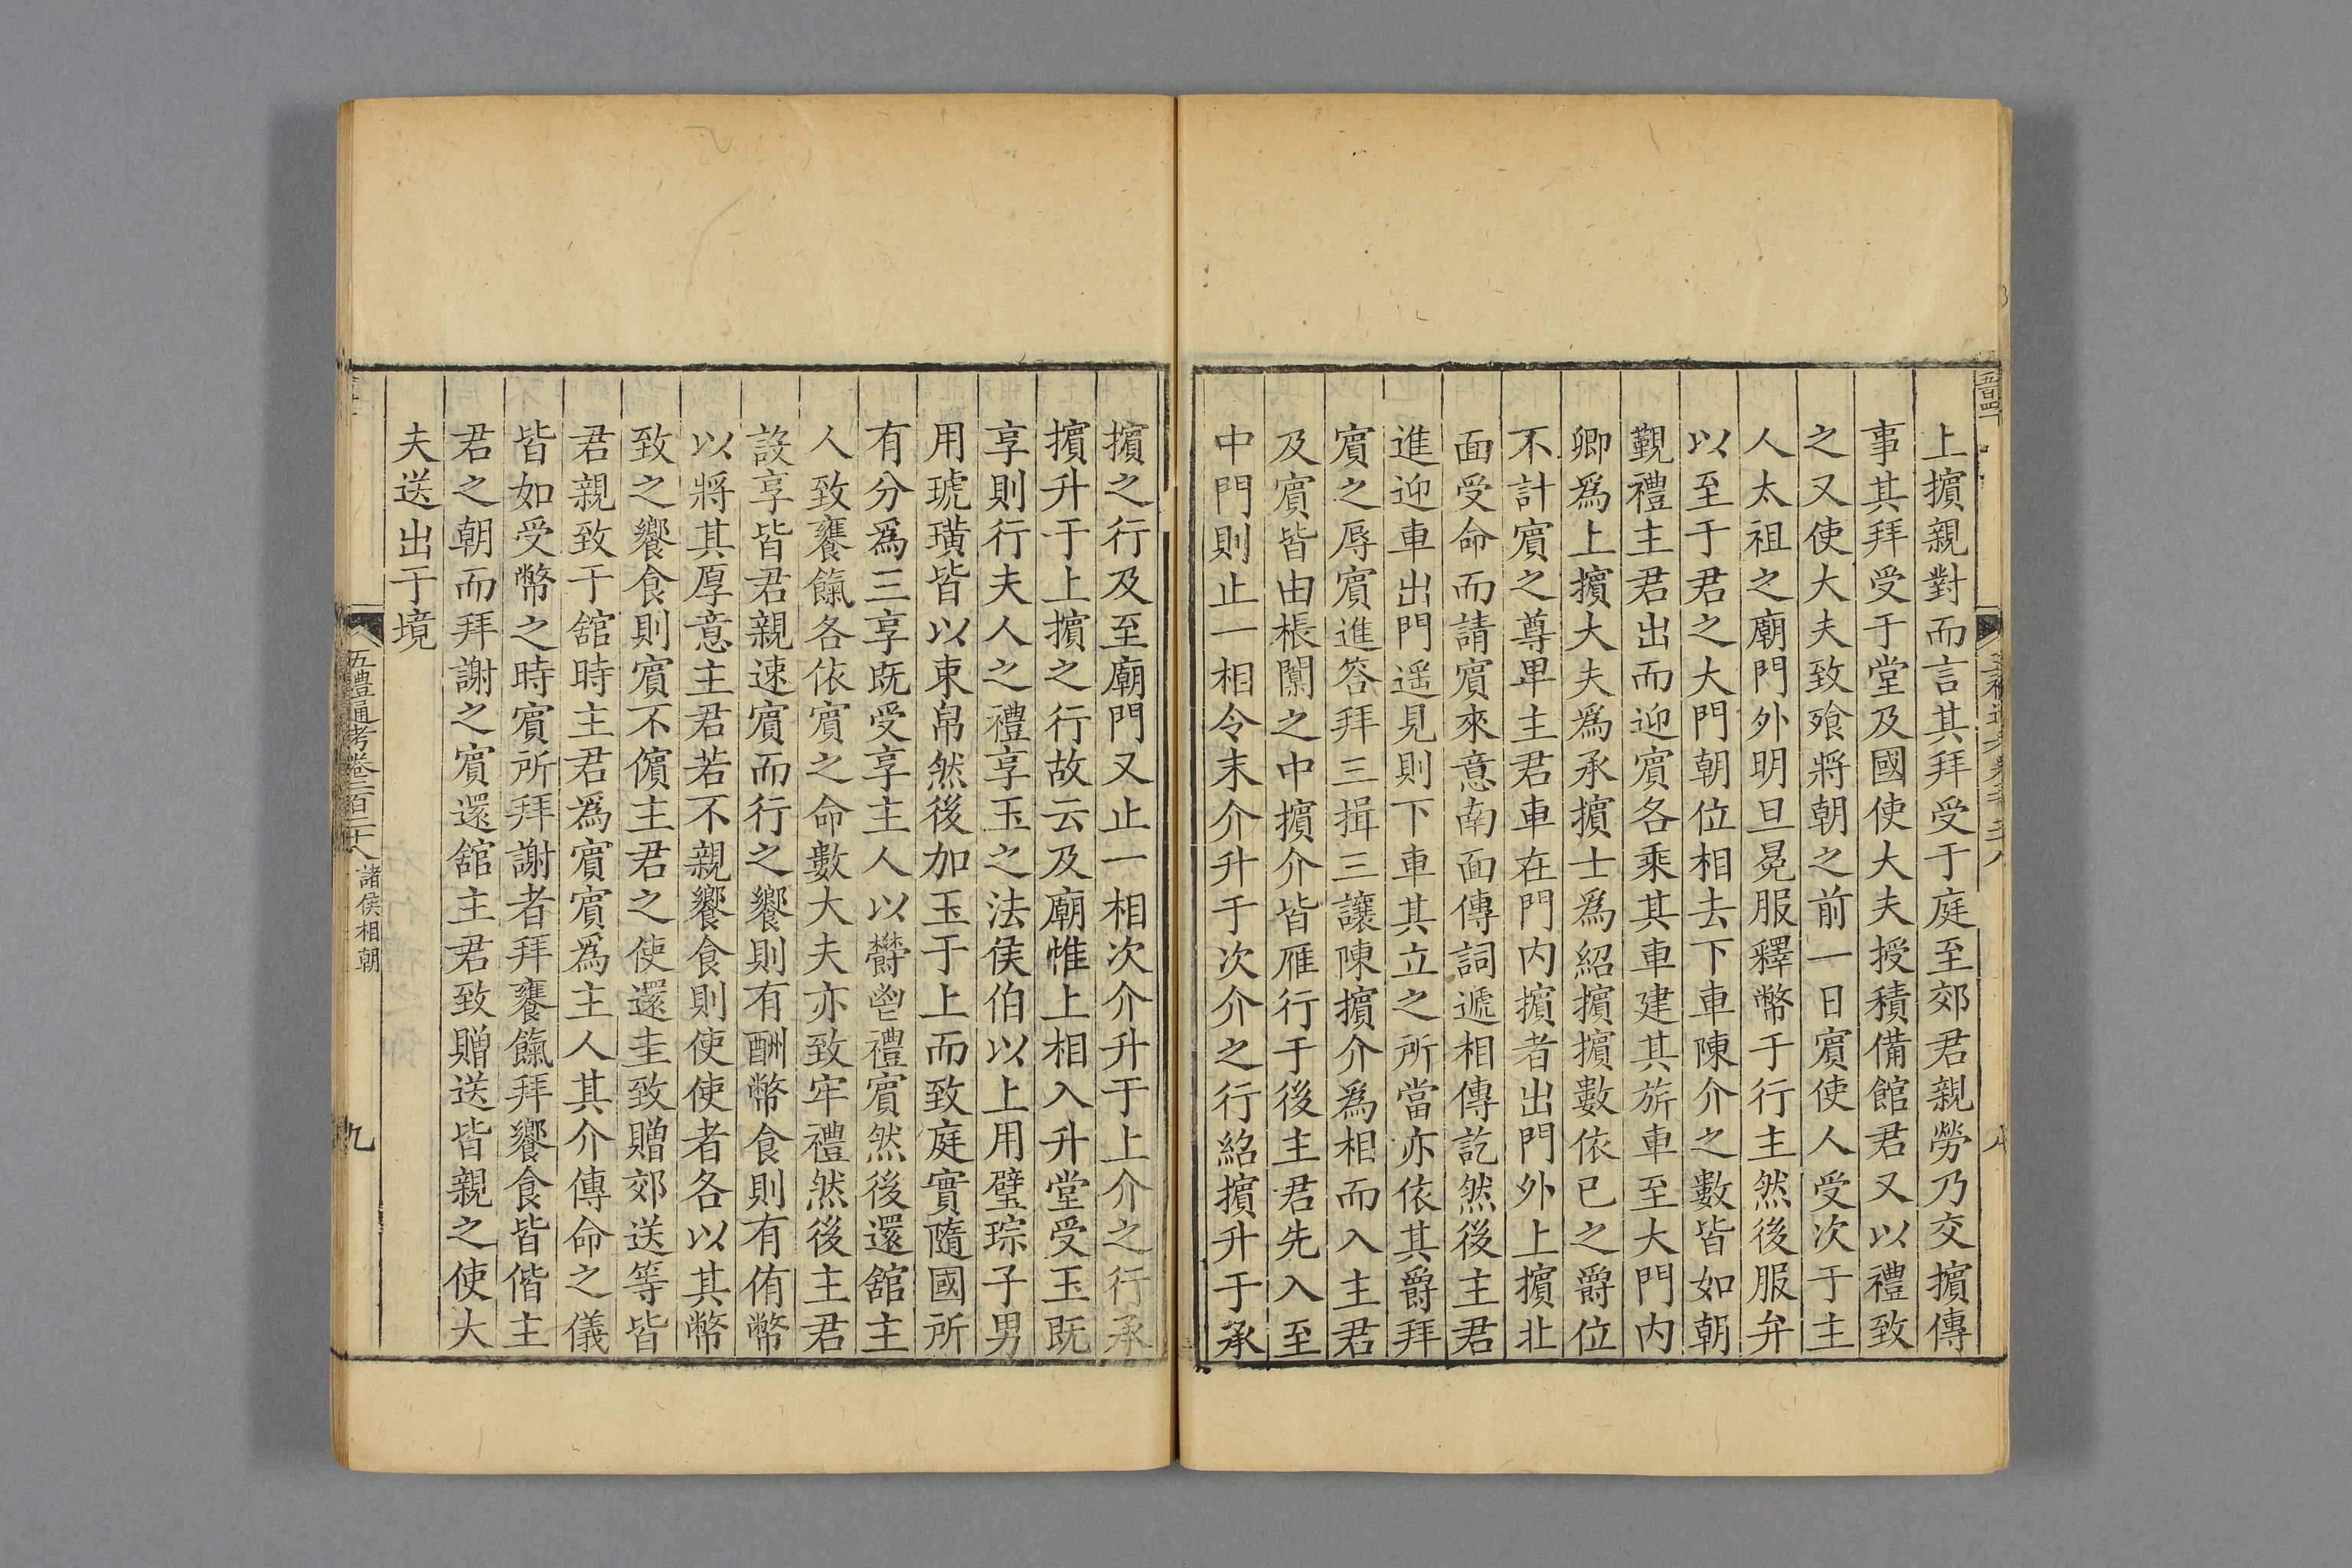 上擯親對而言其拜受于庭至郊君親勞乃交擯傳
事其拜受于堂及國使大夫授積備館君又以禮致
之又使大夫致飱將朝之前一日賔使人受次于主
人太祖之廟門外明旦冕服釋幣于行主然後服弁
以至于君之大門朝位相去下車陳介之數皆如朝
覲禮主君出而迎賔各乘其車建其旂車至大門内
卿爲上擯大夫爲承擯士爲紹擯擯數依已之爵位
不計賔之尊畢主君車在門内擯者出門外上擯北
面受命而請賔來意南面傳詞遞相傳訖然後主君
進迎車出門遥見則下車其立之所當亦依其爵拜
賔之辱賔進答拜三揖三讓陳擯介爲相而入主君
及賔皆由棖闑之中擯介皆雁行于後主君先入至
中門則止一相令末介升于次介之行紹擯升于承
擯之行及至廟門又止一相次介升于上介之行承
擯升于上擯之行故云及廟惟上相入升堂受玉既
享則行夫人之禮享玉之法侯伯以上用璧琮子男
用琥璜皆以束帛然後加玉于上而致庭實隨國所
有分爲三享既受享主人以欝鬯禮賔然後還舘主
人致饔餼各依賔之命數大夫亦致牢禮然後主君
設享皆君親速賔而行之饗則有酬幣食則有侑幣
以將其厚意主君若不親饗食則使使者各以其幣
致之饗食則賔不儐主君之使還圭致贈郊送等皆
君親致于舘時主君爲賔賔爲主人其介傳命之儀
皆如受幣之時賔所拜謝者拜饔餼拜饗食皆偕主
君之朝而拜謝之賔還舘主君致贈送皆親之使大
夫送出于境
五禮通考卷二百二十八 諸侯相朝 九